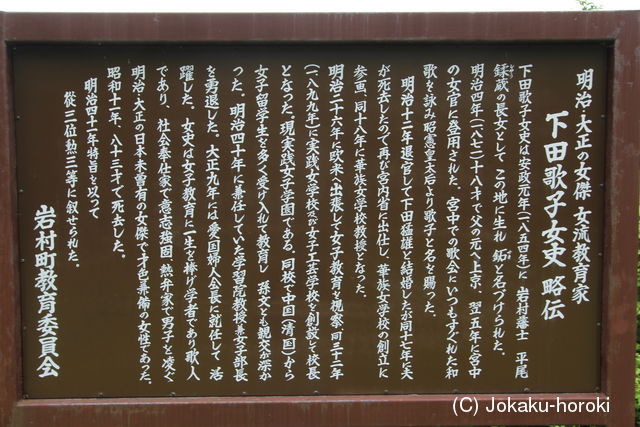 明治・大正の女傑 女流教育家
下田歌子女史 略伝
下田歌子女史は安政元年(一八五四年)に 岩村藩士 平尾
鍒蔵の長女として この地に生れ 鉐と名づけられた。
明治四年(一八七一)十八才で父の元へ上京、翌五年に宮中
の女官に登用された。宮中での歌会にいつもすぐれた和
歌を詠み昭憲皇太后より歌子と名を賜った。
明治十二年退官して下田猛雄と結婚したが同十七年に夫
が死去したので再び宮内省に出仕し 華族女学校の創立に
参画、同十八年に華族女学校教授となった。
明治二十六年に欧米へ出張して女子教育を視察 同三十二年
(一八九九年)に実践女学校及び女子工芸学校を創設し校長
となった。現実践女子学園である。同校で中国(清国)から
女子留学生を多く受け入れて教育し 孫文とも親交が深か
った。明治四十年に兼任していた学習院教授兼女学部長
を勇退した。大正九年には愛国婦人会長に就任して 活
躍した。女史は女子教育に一生を捧げ学者であり歌人
であり、社会奉仕家で意志強固、熱弁家で男子を凌ぐ
明治・大正の日本未曽有の女傑で才色兼備の女性であった。
昭和十一年、八十三才で死去した。
明治四十一年特旨を以って
從三位勲三等に叙せられた。
岩村町教育委員会
(C) Jokaku-horoki